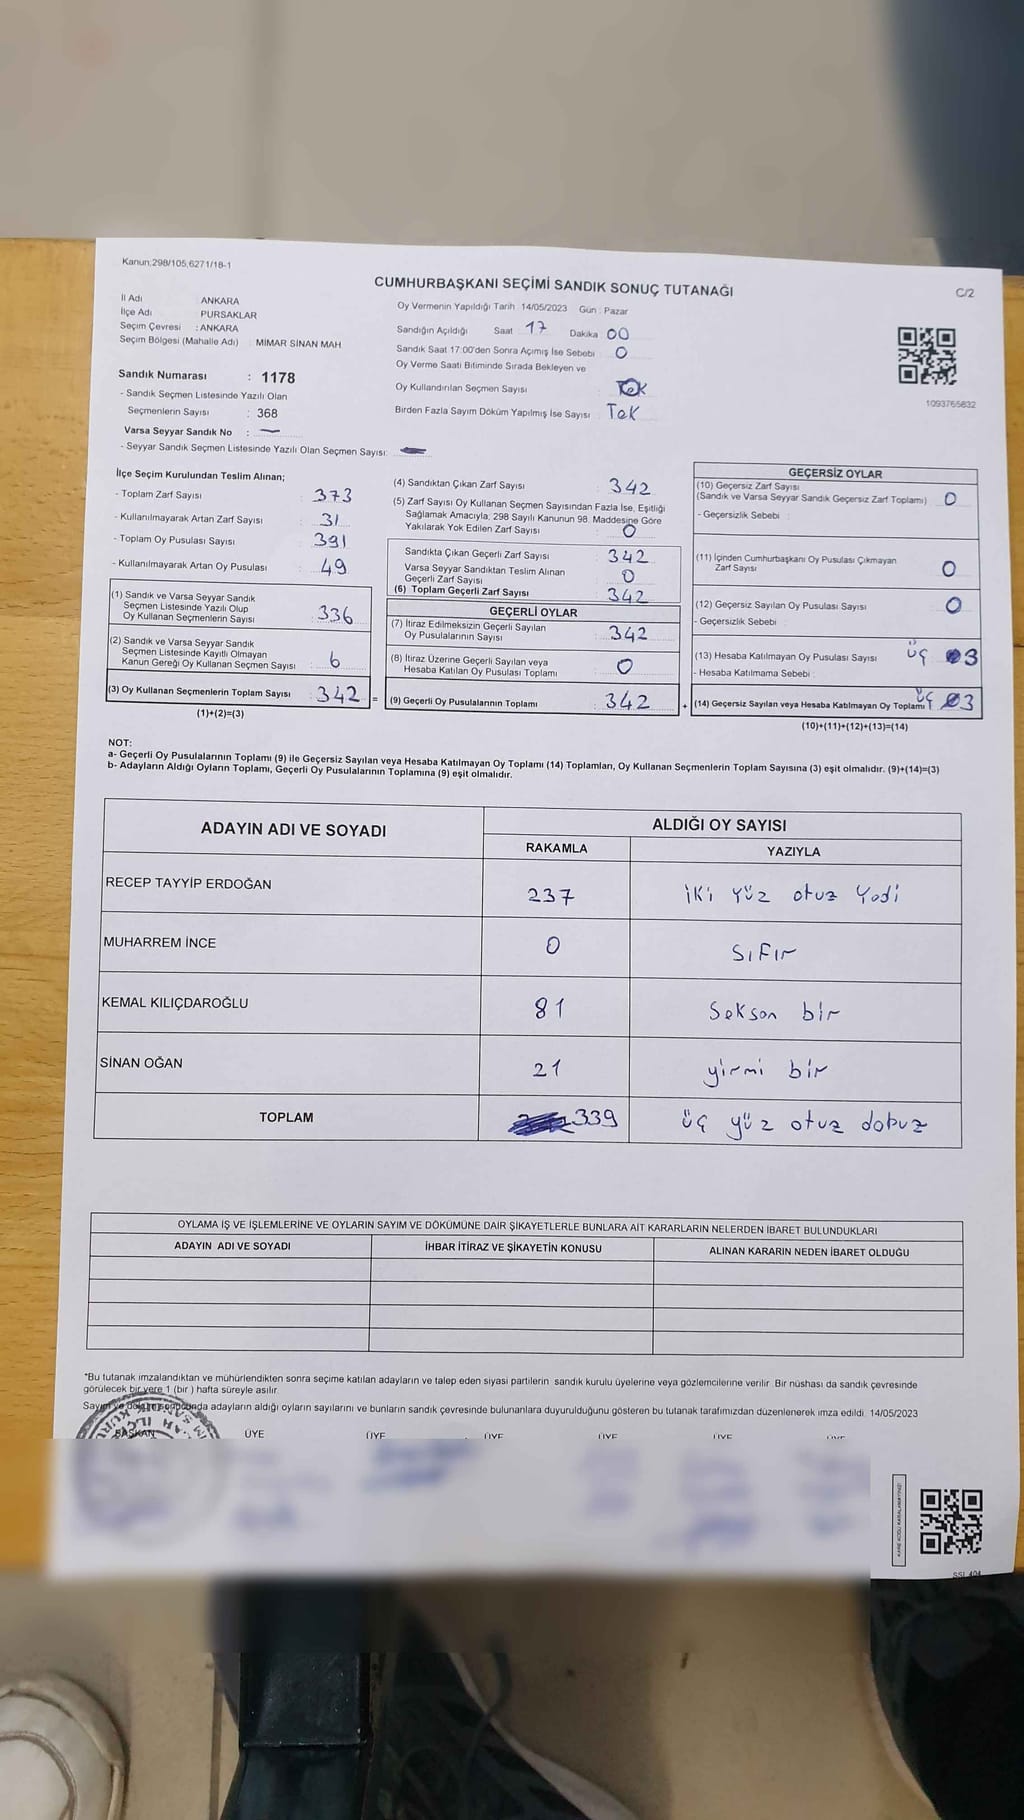 Kanun:298/105,6271/18-1
CUMHURBAŞKANI SEÇİMİ SANDIK SONUÇ TUTANAĞI
C/2
İl Adı : ANKARA
İlçe Adı : PURSAKLAR
Seçim Çevresi : ANKARA
Seçim Bölgesi (Mahalle Adı) : MİMAR SİNAN MAH.
Sandık Numarası : 1178
- Sandık Seçmen Listesinde Yazılı Olan
Seçmenlerin Sayısı : 368
Varsa Seyyar Sandık No : —
- Seyyar Sandık Seçmen Listesinde Yazılı Olan Seçmen Sayısı:
Oy Vermenin Yapıldığı Tarih 14/05/2023 Gün : Pazar
Sandığın Açıldığı Saat 17 Dakika 00
Sandık Saat 17:00'den Sonra Açımış İse Sebebi 0
Oy Verme Saati Bitiminde Sırada Bekleyen ve
Oy Kullandırılan Seçmen Sayısı :
Birden Fazla Sayım Döküm Yapılmış İse Sayısı : Tek
1093765832
İlçe Seçim Kurulundan Teslim Alınan;
- Toplam Zarf Sayısı : 373
- Kullanılmayarak Artan Zarf Sayısı : 31
- Toplam Oy Pusulası Sayısı : 391
- Kullanılmayarak Artan Oy Pusulası : 49
(1) Sandık ve Varsa Seyyar Sandık
Seçmen Listesinde Yazılı Olup
Oy Kullanan Seçmenlerin Sayısı : 336
(2) Sandık ve Varsa Seyyar Sandık
Seçmen Listesinde Kayıtlı Olmayan
Kanun Gereği Oy Kullanan Seçmen Sayısı : 6
(3) Oy Kullanan Seçmenlerin Toplam Sayısı : 342 =
(1)+(2)=(3)
(4) Sandıktan Çıkan Zarf Sayısı : 342
(5) Zarf Sayısı Oy Kullanan Seçmen Sayısından Fazla İse, Eşitliği
Sağlamak Amacıyla, 298 Sayılı Kanunun 98. Maddesine Göre
Yakılarak Yok Edilen Zarf Sayısı : 0
Sandıkta Çıkan Geçerli Zarf Sayısı : 342
Varsa Seyyar Sandıktan Teslim Alınan
Geçerli Zarf Sayısı : 0
(6) Toplam Geçerli Zarf Sayısı : 342
GEÇERLİ OYLAR
(7) İtiraz Edilmeksizin Geçerli Sayılan
Oy Pusulalarının Sayısı : 342
(8) İtiraz Üzerine Geçerli Sayılan veya
Hesaba Katılan Oy Pusulası Toplamı : 0
(9) Geçerli Oy Pusulalarının Toplamı : 342 +
GEÇERSİZ OYLAR
(10) Geçersiz Zarf Sayısı
(Sandık ve Varsa Seyyar Sandık Geçersiz Zarf Toplamı) : 0
- Geçersizlik Sebebi :
(11) İçinden Cumhurbaşkanı Oy Pusulası Çıkmayan
Zarf Sayısı : 0
(12) Geçersiz Sayılan Oy Pusulası Sayısı : 0
- Geçersizlik Sebebi :
(13) Hesaba Katılmayan Oy Pusulası Sayısı : üç 3
- Hesaba Katılmama Sebebi :
(14) Geçersiz Sayılan veya Hesaba Katılmayan Oy Toplamı üç 3
(10)+(11)+(12)+(13)=(14)
NOT:
a- Geçerli Oy Pusulalarının Toplamı (9) ile Geçersiz Sayılan veya Hesaba Katılmayan Oy Toplamı (14) Toplamları, Oy Kullanan Seçmenlerin Toplam Sayısına (3) eşit olmalıdır. (9)+(14)=(3)
b- Adayların Aldığı Oyların Toplamı, Geçerli Oy Pusulalarının Toplamına (9) eşit olmalıdır.
ADAYIN ADI VE SOYADI
ALDIĞI OY SAYISI
RAKAMLA YAZIYLA
RECEP TAYYİP ERDOĞAN 237 iki yüz otuz Yedi
MUHARREM İNCE 0 sıfır
KEMAL KILIÇDAROĞLU 81 Seksen bir
SİNAN OĞAN 21 yirmi bir
TOPLAM 339 üç yüz otuz dokuz
OYLAMA İŞ VE İŞLEMLERİNE VE OYLARIN SAYIM VE DÖKÜMÜNE DAİR ŞİKAYETLERLE BUNLARA AİT KARARLARIN NELERDEN İBARET BULUNDUKLARI
ADAYIN ADI VE SOYADI İHBAR İTİRAZ VE ŞİKAYETİN KONUSU ALINAN KARARIN NEDEN İBARET OLDUĞU
*Bu tutanak imzalandıktan ve mühürlendikten sonra seçime katılan adayların ve talep eden siyasi partilerin sandık kurulu üyelerine veya gözlemcilerine verilir. Bir nüshası da sandık çevresinde
görülecek bir yere 1 (bir ) hafta süreyle asılır.
Sayım ve döküm sonucunda adayların aldığı oyların sayılarını ve bunların sandık çevresinde bulunanlara duyurulduğunu gösteren bu tutanak tarafımızdan düzenlenerek imza edildi. 14/05/2023
BAŞKAN ÜYE ÜYE ÜYE ÜYE ÜYE ÜYE